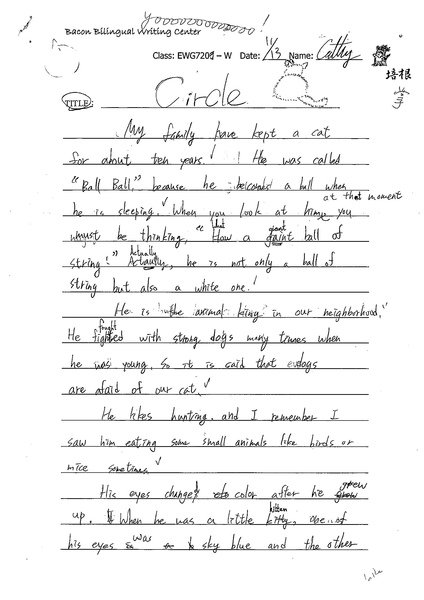 yoooooooooooo!
Bacon Bilingual Writing Center
Class: EWG7201 – W Date: 11/13 Name: Cathy
培根
TITLE: Circle
My family have kept a cat
for about ten years. He was called
"Ball Ball," because he becomes a ball when
at that moment
he is sleeping. When you look at him, you
must be thinking, "What a giant ball of
string!" Actually, he is not only a ball of
string but also a white one.
He is the animal king in our neighborhood.
fought
He fighted with strong dogs many times when
he was young. So it is said that dogs
are afraid of our cat.
He likes hunting, and I remember I
saw him eating some small animals like birds or
mice sometimes.
grew
His eyes change color after he grow
kitten
up. When he was a little kitty, one of
his eyes was sky blue and the other